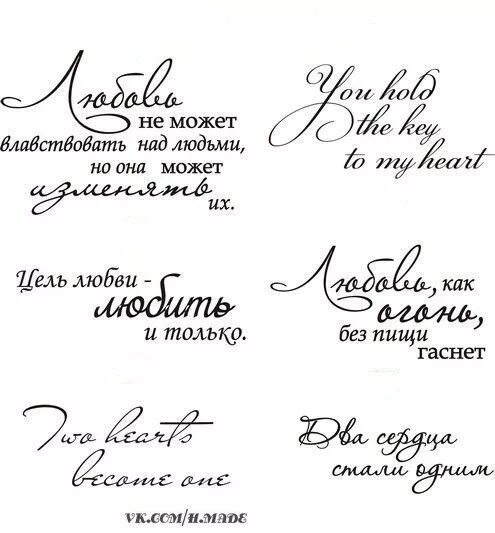 Любовь
не может
влавствовать над людьми,
но она может
изменять
их.
You hold
the key
to my heart
Цель любви -
любить
и только.
Любовь, как
огонь,
без пищи
гаснет
Two hearts
become one
Два сердца
стали одним
VK.COM/H.MADE